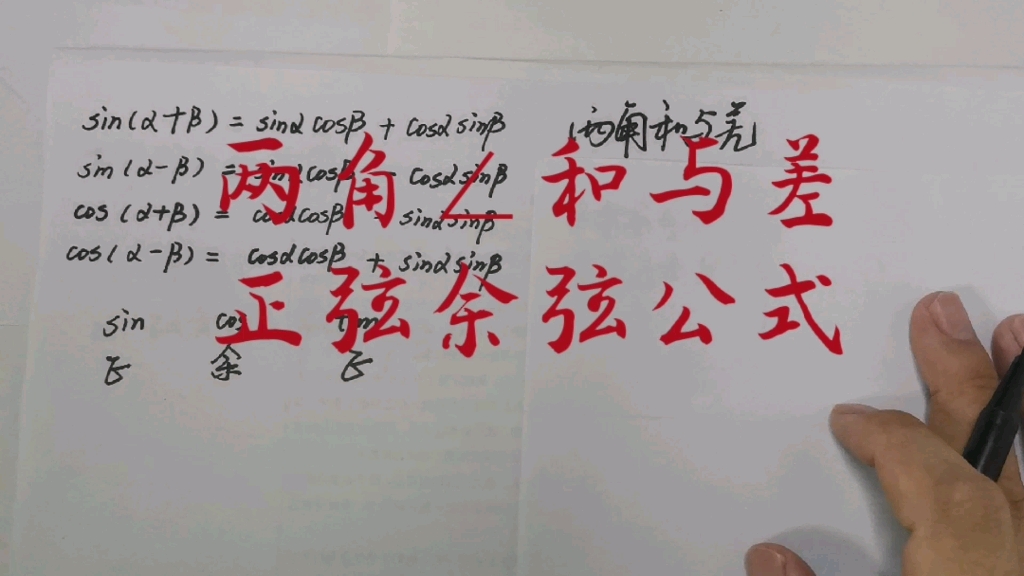 sin(α+β) = sinα cosβ + cosα sinβ
两角和与差
sin(α-β) = sinα cosβ - cosα sinβ
cos(α+β) = cosα cosβ - sinα sinβ
cos(α-β) = cosα cosβ + sinα sinβ
sin cos tan
余
两角∠和与差
正弦余弦公式